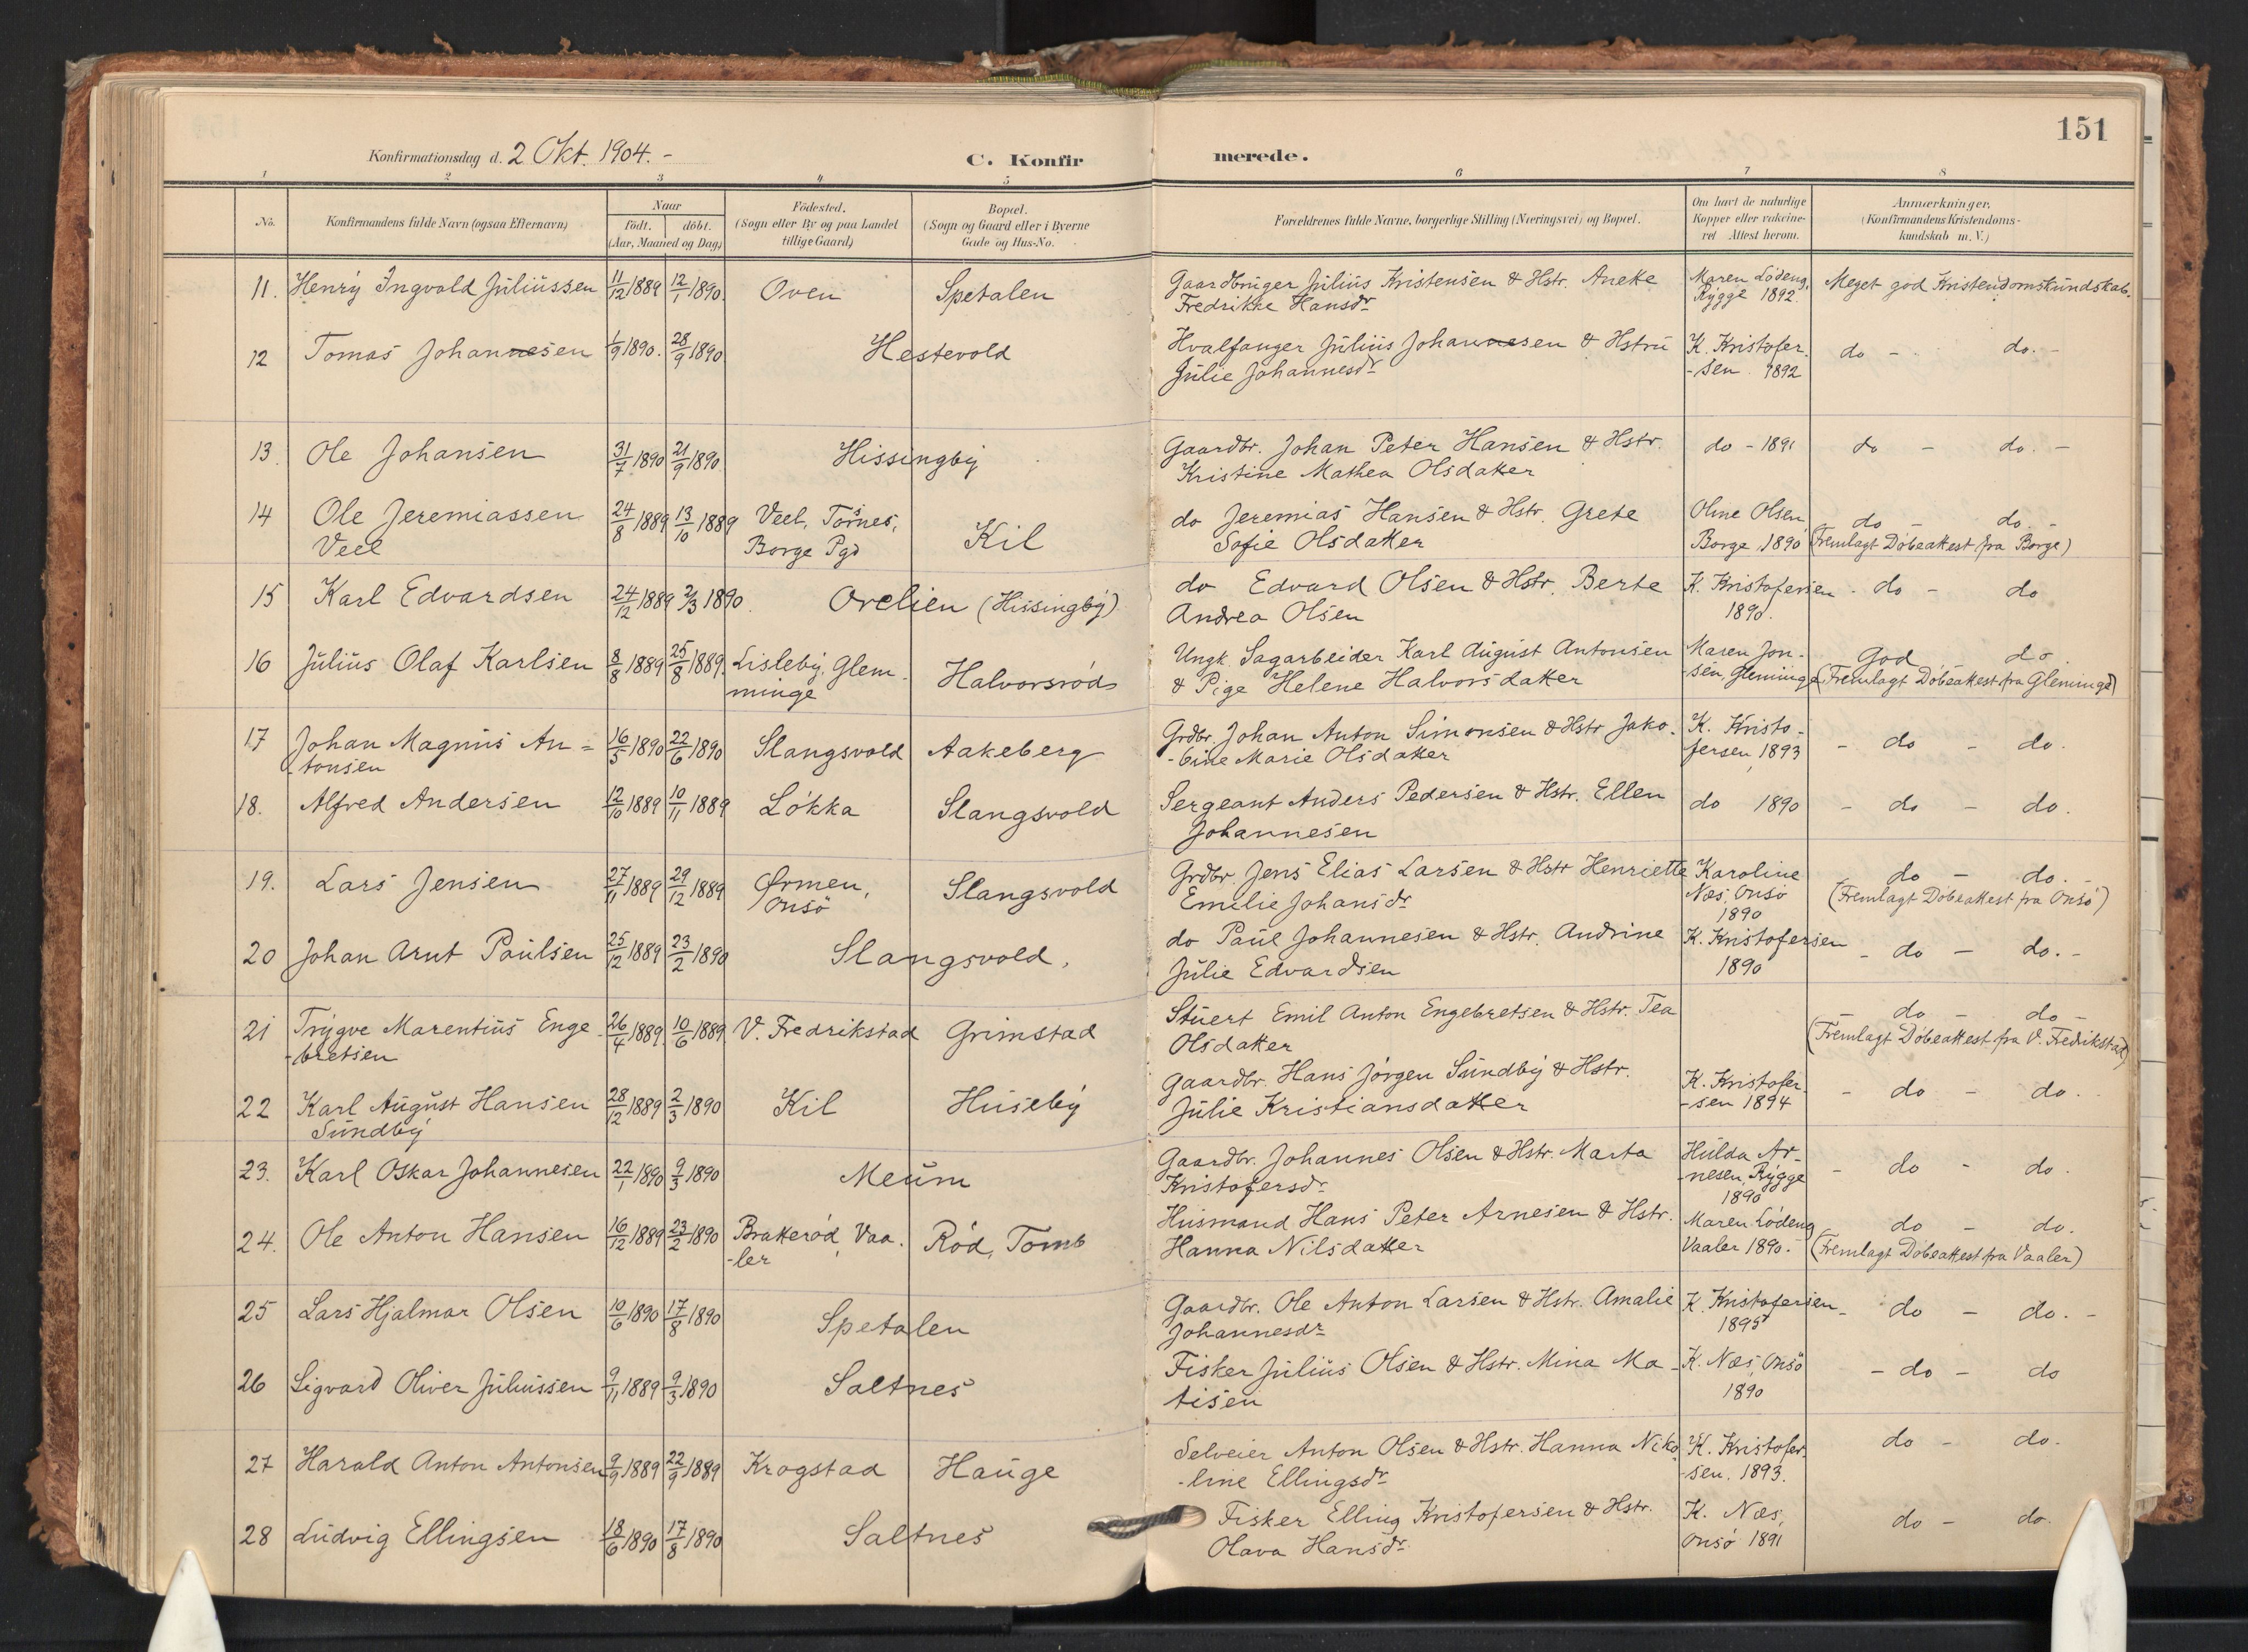 151
Konfirmationsdag d. 2 Okt. 1904. -
C. Konfirmerede.
1 2 3 4 5 6 7 8
No. Konfirmandens fulde Navn (ogsaa Efternavn) Naar födt. döbt. (Aar, Maaned og Dag) Födested. (Sogn eller By og paa Landet tillige Gaard) Bopæl. (Sogn og Gaard eller i Byerne Gade og Hus-No. Forældrenes fulde Navne, borgerlige Stilling (Næringsvei) og Bopæl. Om havt de naturlige Kopper eller vakcineret Attest herom. Anmærkninger. (Konfirmandens Kristendomskundskab m. V.)
11. Henry Ingvald Juliussen 11/12 1889 12/1 1890. Oven Spetalen Gaardbruger Julius Kristensen & Hstr. Anette Maren Lödeng, Meget god Kristendomskundskab.
Fredrikke Hansdr Rygge 1892.
12 Tomas Johannesen 1/9 1890. 28/9 1890 Hestevold Hvalfanger Julius Johannesen & Hstru K. Kristofer- do - do. -
Julie Johannesdr -sen 1892
13. Ole Johansen 31/7 1890 21/9 1890 Hissingby Gaardbr. Johan Peter Hansen & Hstr. do - 1891 do - do. -
Kristine Mathea Olsdatter
14 Ole Jeremiassen 24/8 1889 13/10 1889 Veel, Torsnes, Kil do Jeremias Hansen & Hstr. Grete Oline Olsen do - do. -
Veel Borge Pgd Sofie Olsdatter Borge 1890 (Fremlagt Döbeattest fra Borge)
15 Karl Edvardsen 24/12 1889 2/3 1890. Orelien (Hissingby) do Edvard Olsen & Hstr. Berte K. Kristofersen - do - do
Andrea Olsen 1890.
16 Julius Olaf Karlsen 8/8 1889 25/8 1889. Lisleby, Glem- Halvorsröd Ungk. Sagarbeider Karl August Antonsen Maren Jon- God - do.
minge & Pige Helene Halvorsdatter -sen, Gleminge (Fremlagt Döbeattest fra Gleminge)
17 Johan Magnus An- 16/5 1890 22/6 1890 Slangsvold Aakeberg Grdbr. Johan Anton Simonsen & Hstr Jako- K. Kristo- - do - do.
-tonsen -bine Marie Olsdatter fersen 1893
18. Alfred Andersen 12/10 1889 10/11 1889 Lökka Slangsvold Sergeant Anders Pedersen & Hstr. Ellen do 1890 - do - do.
Johannesen
19. Lars Jensen 27/11 1889 29/12 1889 Ørmen, Slangsvold Grdbr Jens Elias Larsen & Hstr Henriette Karoline do - do. -
Onsö Emilie Johansdr Næs, Onsö (Fremlagt Döbeattest fra Onsö)
1890
20 Johan Arnt Paulsen 25/12 1889 23/2 1890 Slangsvold. do Paul Johannesen & Hstr. Andrine K. Kristofersen - do - do. -
Julie Edvardsen 1890
21 Trygve Marentius Enge- 26/4 1889. 10/6 1889. V. Fredrikstad Grimstad Stuert Emil Anton Engebretsen & Hstr. Tea - do - do -
-bretsen Olsdatter (Fremlagt Döbeattest fra V. Fredrikstad)
22 Karl August Hansen 28/12 1889 2/3 1890 Kil Huseby Gaardbr. Hans Jörgen Sundby & Hstr. K. Kristofer- - do - do.
Sundby Julie Kristiansdatter -sen 1894
23. Karl Oskar Johannesen 22/1 1890 9/3 1890 Meum Gaardbr. Johannes Olsen & Hstr. Marta Hulda Ar- - do - do.
Kristofersdr -nesen, Rygge
1890
24. Ole Anton Hansen 16/12 1889 23/2 1890 Bratteröd, Vaa- Röd, Tomb Husmand Hans Peter Arnesen & Hstr. Maren Lödeng do - do.
-ler Hanna Nilsdatter Vaaler 1890. - (Fremlagt Döbeattest fra Vaaler)
25 Lars Hjalmar Olsen 10/6 1890 17/8 1890 Spetalen Gaardbr. Ole Anton Larsen & Hstr. Amalie K. Kristofersen - do - do. -
Johannesdr 1895
26 Sigvard Oliver Juliussen 9/11 1889 9/3 1890 Saltnes Fisker Julius Olsen & Hstr. Mina Ma- K. Næs, Onsö - do - do
tisen 1890
27 Harald Anton Antonsen 9/9 1889 22/9 1889 Krogstad Hauge Selveier Anton Olsen & Hstr. Hanna Niko- K. Kristofer- do - do.
-line Ellingsdr -sen. 1893.
28 Ludvig Ellingsen 18/6 1890 17/8 1890 Saltnes Fisker Elling Kristofersen & Hstr. K. Næs, do - do.
Olava Hansdr. Onsö 1891